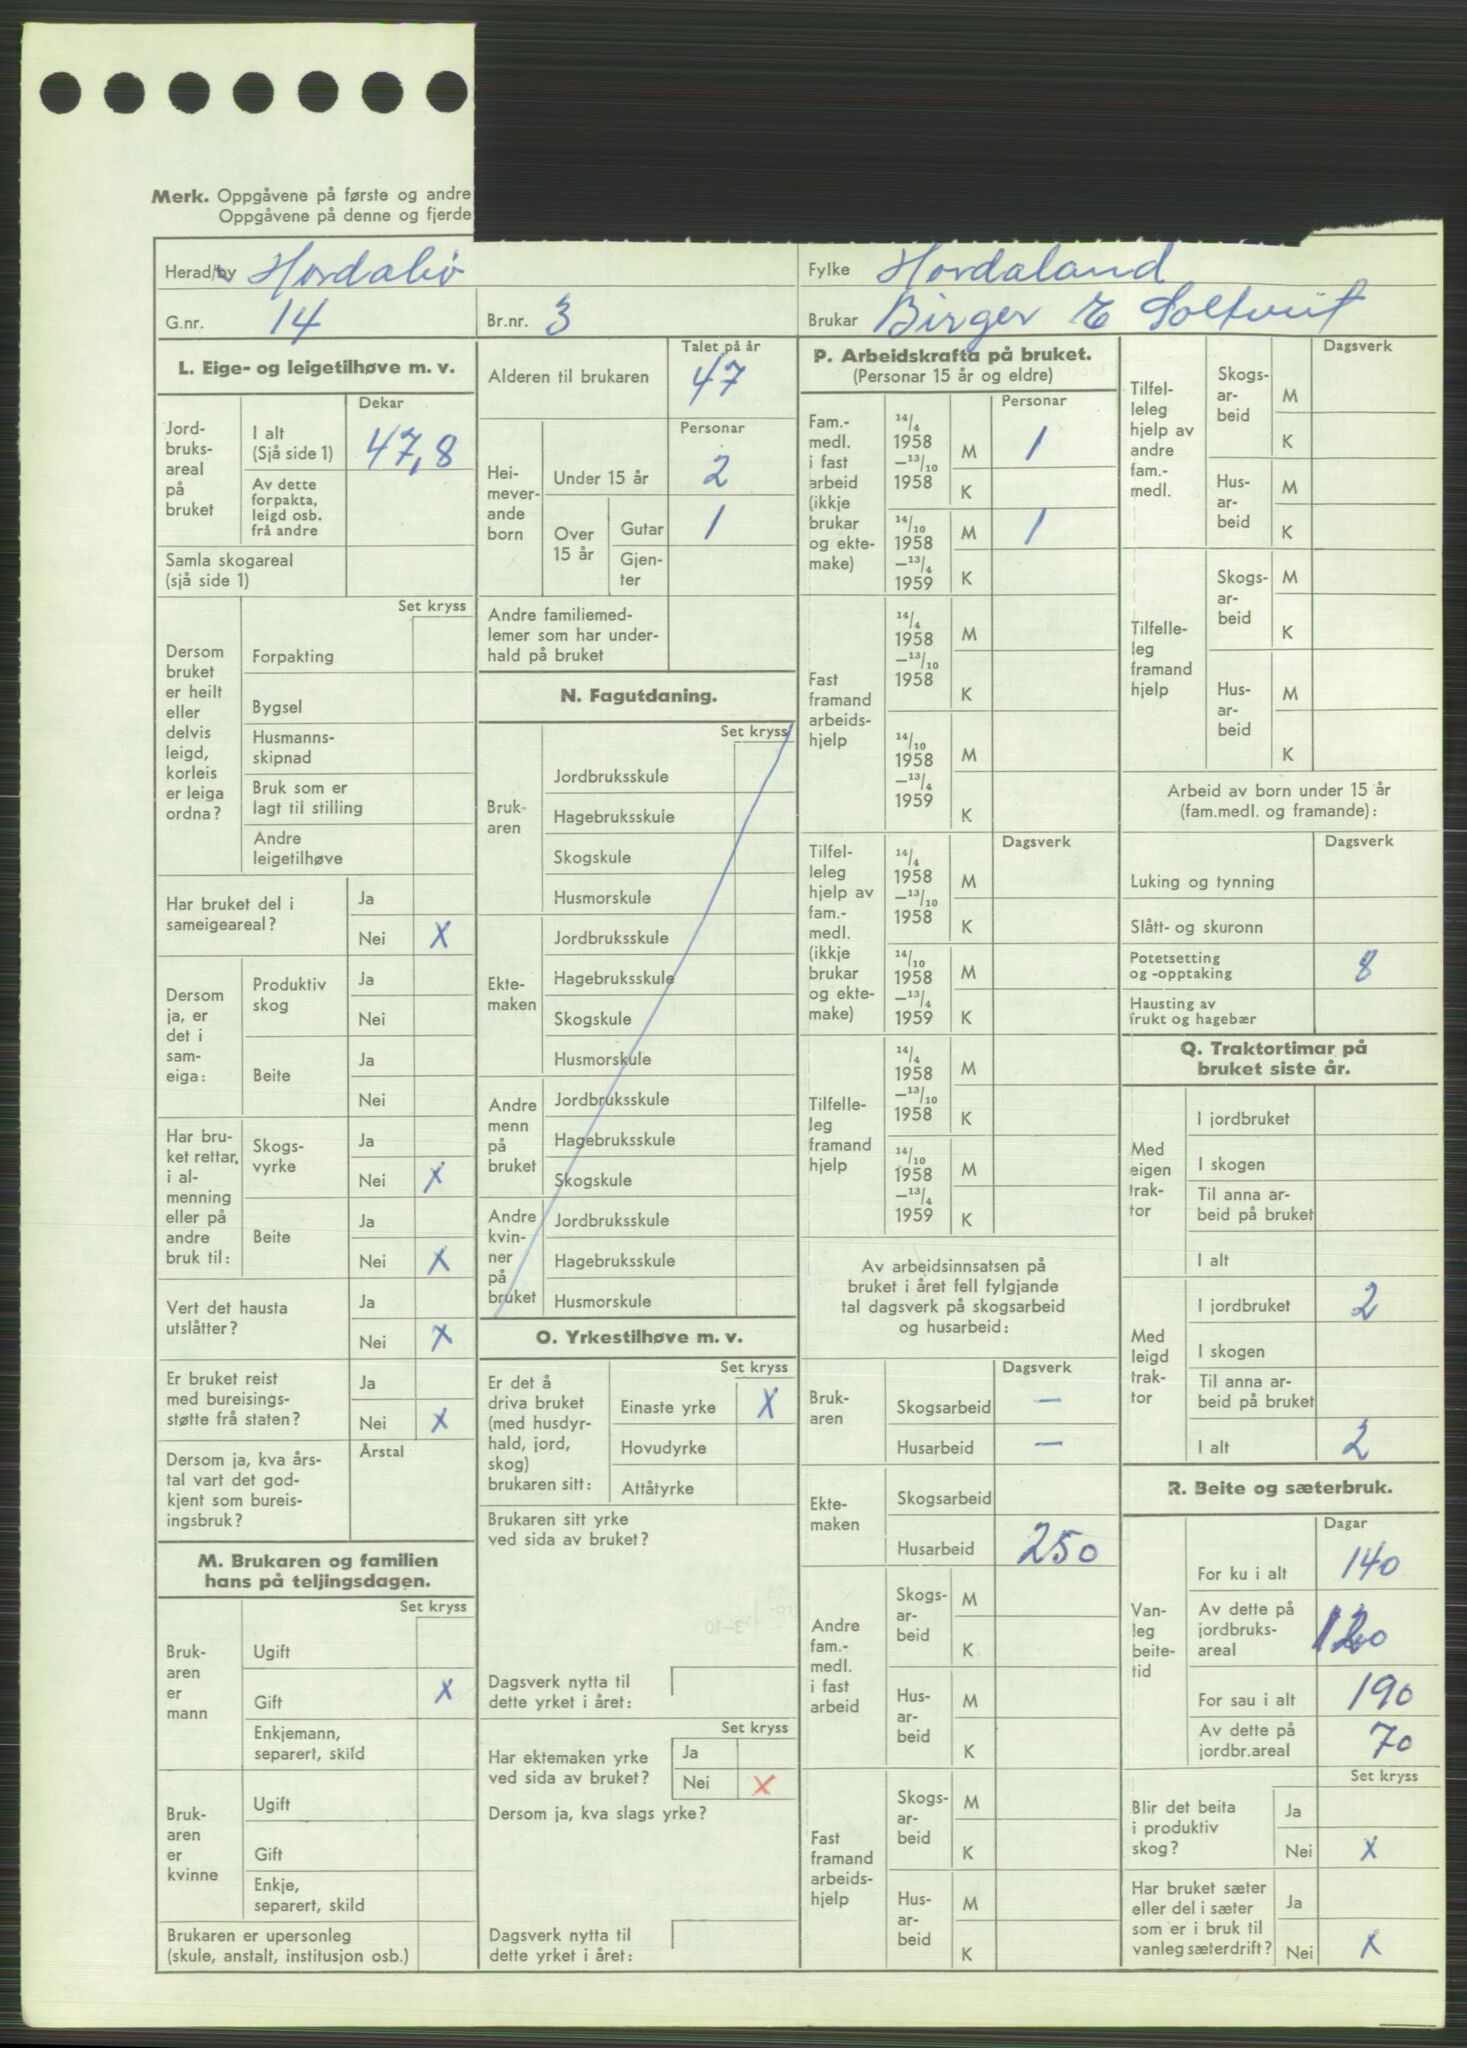 Merk. Oppgåvene på første og andre
Oppgåvene på denne og fjerde
Herad/by Hordabø
Fylke Hordaland
G.nr. 14
Br.nr. 3
Brukar Birger E Soltveit
L. Eige- og leigetilhøve m. v.
Dekar
Jord-
bruks-
areal
på
bruket
I alt
(Sjå side 1)
47,8
Av dette
forpakta,
leigd osb.
frå andre
Samla skogareal
(sjå side 1)
Set kryss
Dersom
bruket
er heilt
eller
delvis
leigd,
korleis
er leiga
ordna?
Forpakting
Bygsel
Husmanns-
skipnad
Bruk som er
lagt til stilling
Andre
leigetilhøve
Har bruket del i
sameigeareal?
Ja
Nei X
Dersom
ja, er
det i
sam-
eiga:
Produktiv
skog
Ja
Nei
Beite
Ja
Nei
Har bru-
ket rettar,
i al-
menning
eller på
andre
bruk til:
Skogs-
vyrke
Ja
Nei X
Beite
Ja
Nei X
Vert det hausta
utslåtter?
Ja
Nei X
Er bruket reist
med bureisings-
støtte frå staten?
Ja
Nei X
Dersom ja, kva års-
tal vart det god-
kjent som bureis-
ingsbruk?
Årstal
M. Brukaren og familien
hans på teljingsdagen.
Set kryss
Bruk-
aren
er
mann
Ugift
Gift X
Enkjemann,
separert, skild
Bruk-
aren
er
kvinne
Ugift
Gift
Enkje,
separert, skild
Brukaren er upersonleg
(skule, anstalt, institusjon osb.)
Talet på år
Alderen til brukaren 47
Personar
Hei-
mever-
ande
born
Under 15 år 2
Over
15 år
Gutar 1
Gjen-
ter
Andre familiemed-
lemer som har under-
hald på bruket
N. Fagutdaning.
Set kryss
Bruk-
aren
Jordbruksskule
Hagebruksskule
Skogskule
Husmorskule
Ekte-
maken
Jordbruksskule
Hagebruksskule
Skogskule
Husmorskule
Andre
menn
på
bruket
Jordbruksskule
Hagebruksskule
Skogskule
Andre
kvin-
ner
på
bruket
Jordbruksskule
Hagebruksskule
Husmorskule
O. Yrkestilhøve m. v.
Set kryss
Er det å
driva bruket
(med husdyr-
hald, jord,
skog)
brukaren sitt:
Einaste yrke X
Hovudyrke
Attåtyrke
Brukaren sitt yrke
ved sida av bruket?
Dagsverk nytta til
dette yrket i året:
Set kryss
Har ektemaken yrke
ved sida av bruket?
Ja
Nei X
Dersom ja, kva slags yrke?
Dagsverk nytta til
dette yrket i året:
P. Arbeidskrafta på bruket.
(Personar 15 år og eldre)
Personar
Fam.-
medl.
i fast
arbeid
(ikkje
brukar
og ekte-
make)
14/4
1958
–13/10
1958
M 1
K
14/10
1958
–13/4
1959
M 1
K
Fast
framand
arbeids-
hjelp
14/4
1958
–13/10
1958
M
K
14/10
1958
–13/4
1959
M
K
Dagsverk
Tilfel-
leleg
hjelp av
fam.-
medl.
(ikkje
brukar
og ekte-
make)
14/4
1958
–13/10
1958
M
K
14/10
1958
–13/4
1959
M
K
Tilfelle-
leg
framand
hjelp
14/4
1958
–13/10
1958
M
K
14/10
1958
–13/4
1959
M
K
Av arbeidsinnsatsen på
bruket i året fell fylgjande
tal dagsverk på skogsarbeid
og husarbeid:
Dagsverk
Bruk-
aren
Skogsarbeid —
Husarbeid —
Ekte-
maken
Skogsarbeid
Husarbeid 250
Andre
fam.-
medl.
i fast
arbeid
Skogs-
ar-
beid
M
K
Hus-
ar-
beid
M
K
Fast
framand
arbeids-
hjelp
Skogs-
ar-
beid
M
K
Hus-
ar-
beid
M
K
Dagsverk
Tilfel-
leleg
hjelp av
andre
fam.-
medl.
Skogs-
ar-
beid
M
K
Hus-
ar-
beid
M
K
Tilfelle-
leg
framand
hjelp
Skogs-
ar-
beid
M
K
Hus-
ar-
beid
M
K
Arbeid av born under 15 år
(fam.medl. og framande):
Dagsverk
Luking og tynning
Slått- og skuronn
Potetsetting
og -opptaking
8
Hausting av
frukt og hagebær
Q. Traktortimar på
bruket siste år.
Med
eigen
trak-
tor
I jordbruket
I skogen
Til anna ar-
beid på bruket
I alt
Med
leigd
trak-
tor
I jordbruket 2
I skogen
Til anna ar-
beid på bruket
I alt 2
R. Beite og sæterbruk.
Dagar
Van-
leg
beite-
tid
For ku i alt 140
Av dette på
jordbruks-
areal
120
For sau i alt 190
Av dette på
jordbr.areal
70
Set kryss
Blir det beita
i produktiv
skog?
Ja
Nei X
Har bruket sæter
eller del i sæter
som er i bruk til
vanleg sæterdrift?
Ja
Nei X